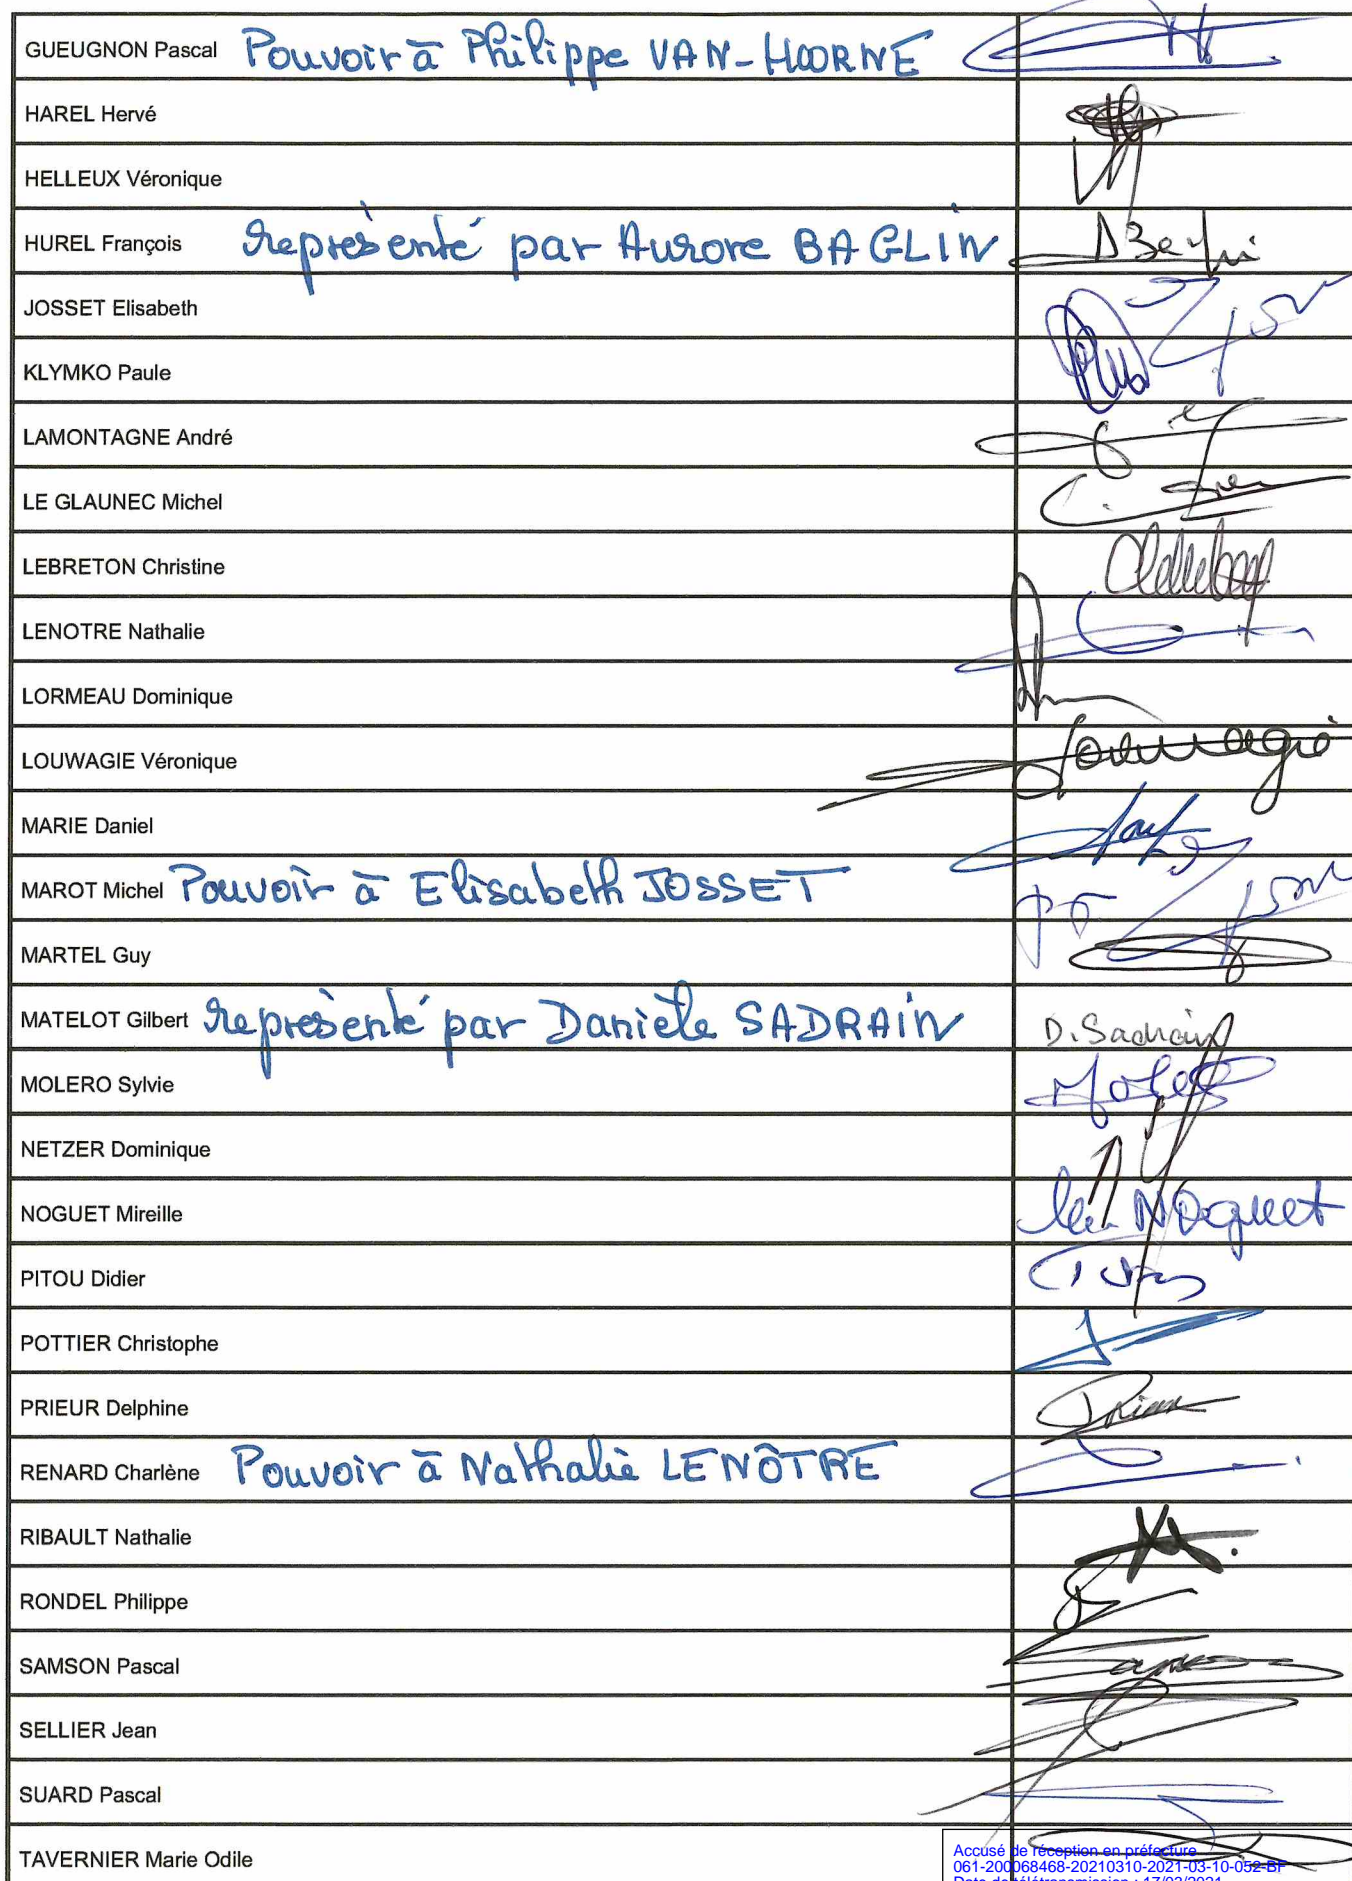 GUEUGNON Pascal Pouvoir à Philippe VAN-HOORNE
HAREL Hervé
HELLEUX Véronique
HUREL François représenté par Aurore BAGLIN
JOSSET Elisabeth
KLYMKO Paule
LAMONTAGNE André
LE GLAUNEC Michel
LEBRETON Christine
LENOTRE Nathalie
LORMEAU Dominique
LOUWAGIE Véronique Louwagie
MARIE Daniel
MAROT Michel Pouvoir à Elisabeth JOSSET
MARTEL Guy
MATELOT Gilbert représenté par Danièle SADRAIN D. Sadrain
MOLERO Sylvie
NETZER Dominique
NOGUET Mireille NOguet
PITOU Didier
POTTIER Christophe
PRIEUR Delphine
RENARD Charlène Pouvoir à Nathalie LENÔTRE
RIBAULT Nathalie
RONDEL Philippe
SAMSON Pascal
SELLIER Jean
SUARD Pascal
TAVERNIER Marie Odile
Accusé de réception en préfecture
061-200068468-20210310-2021-03-10-052-BF
Date de télétransmission : 17/03/2021